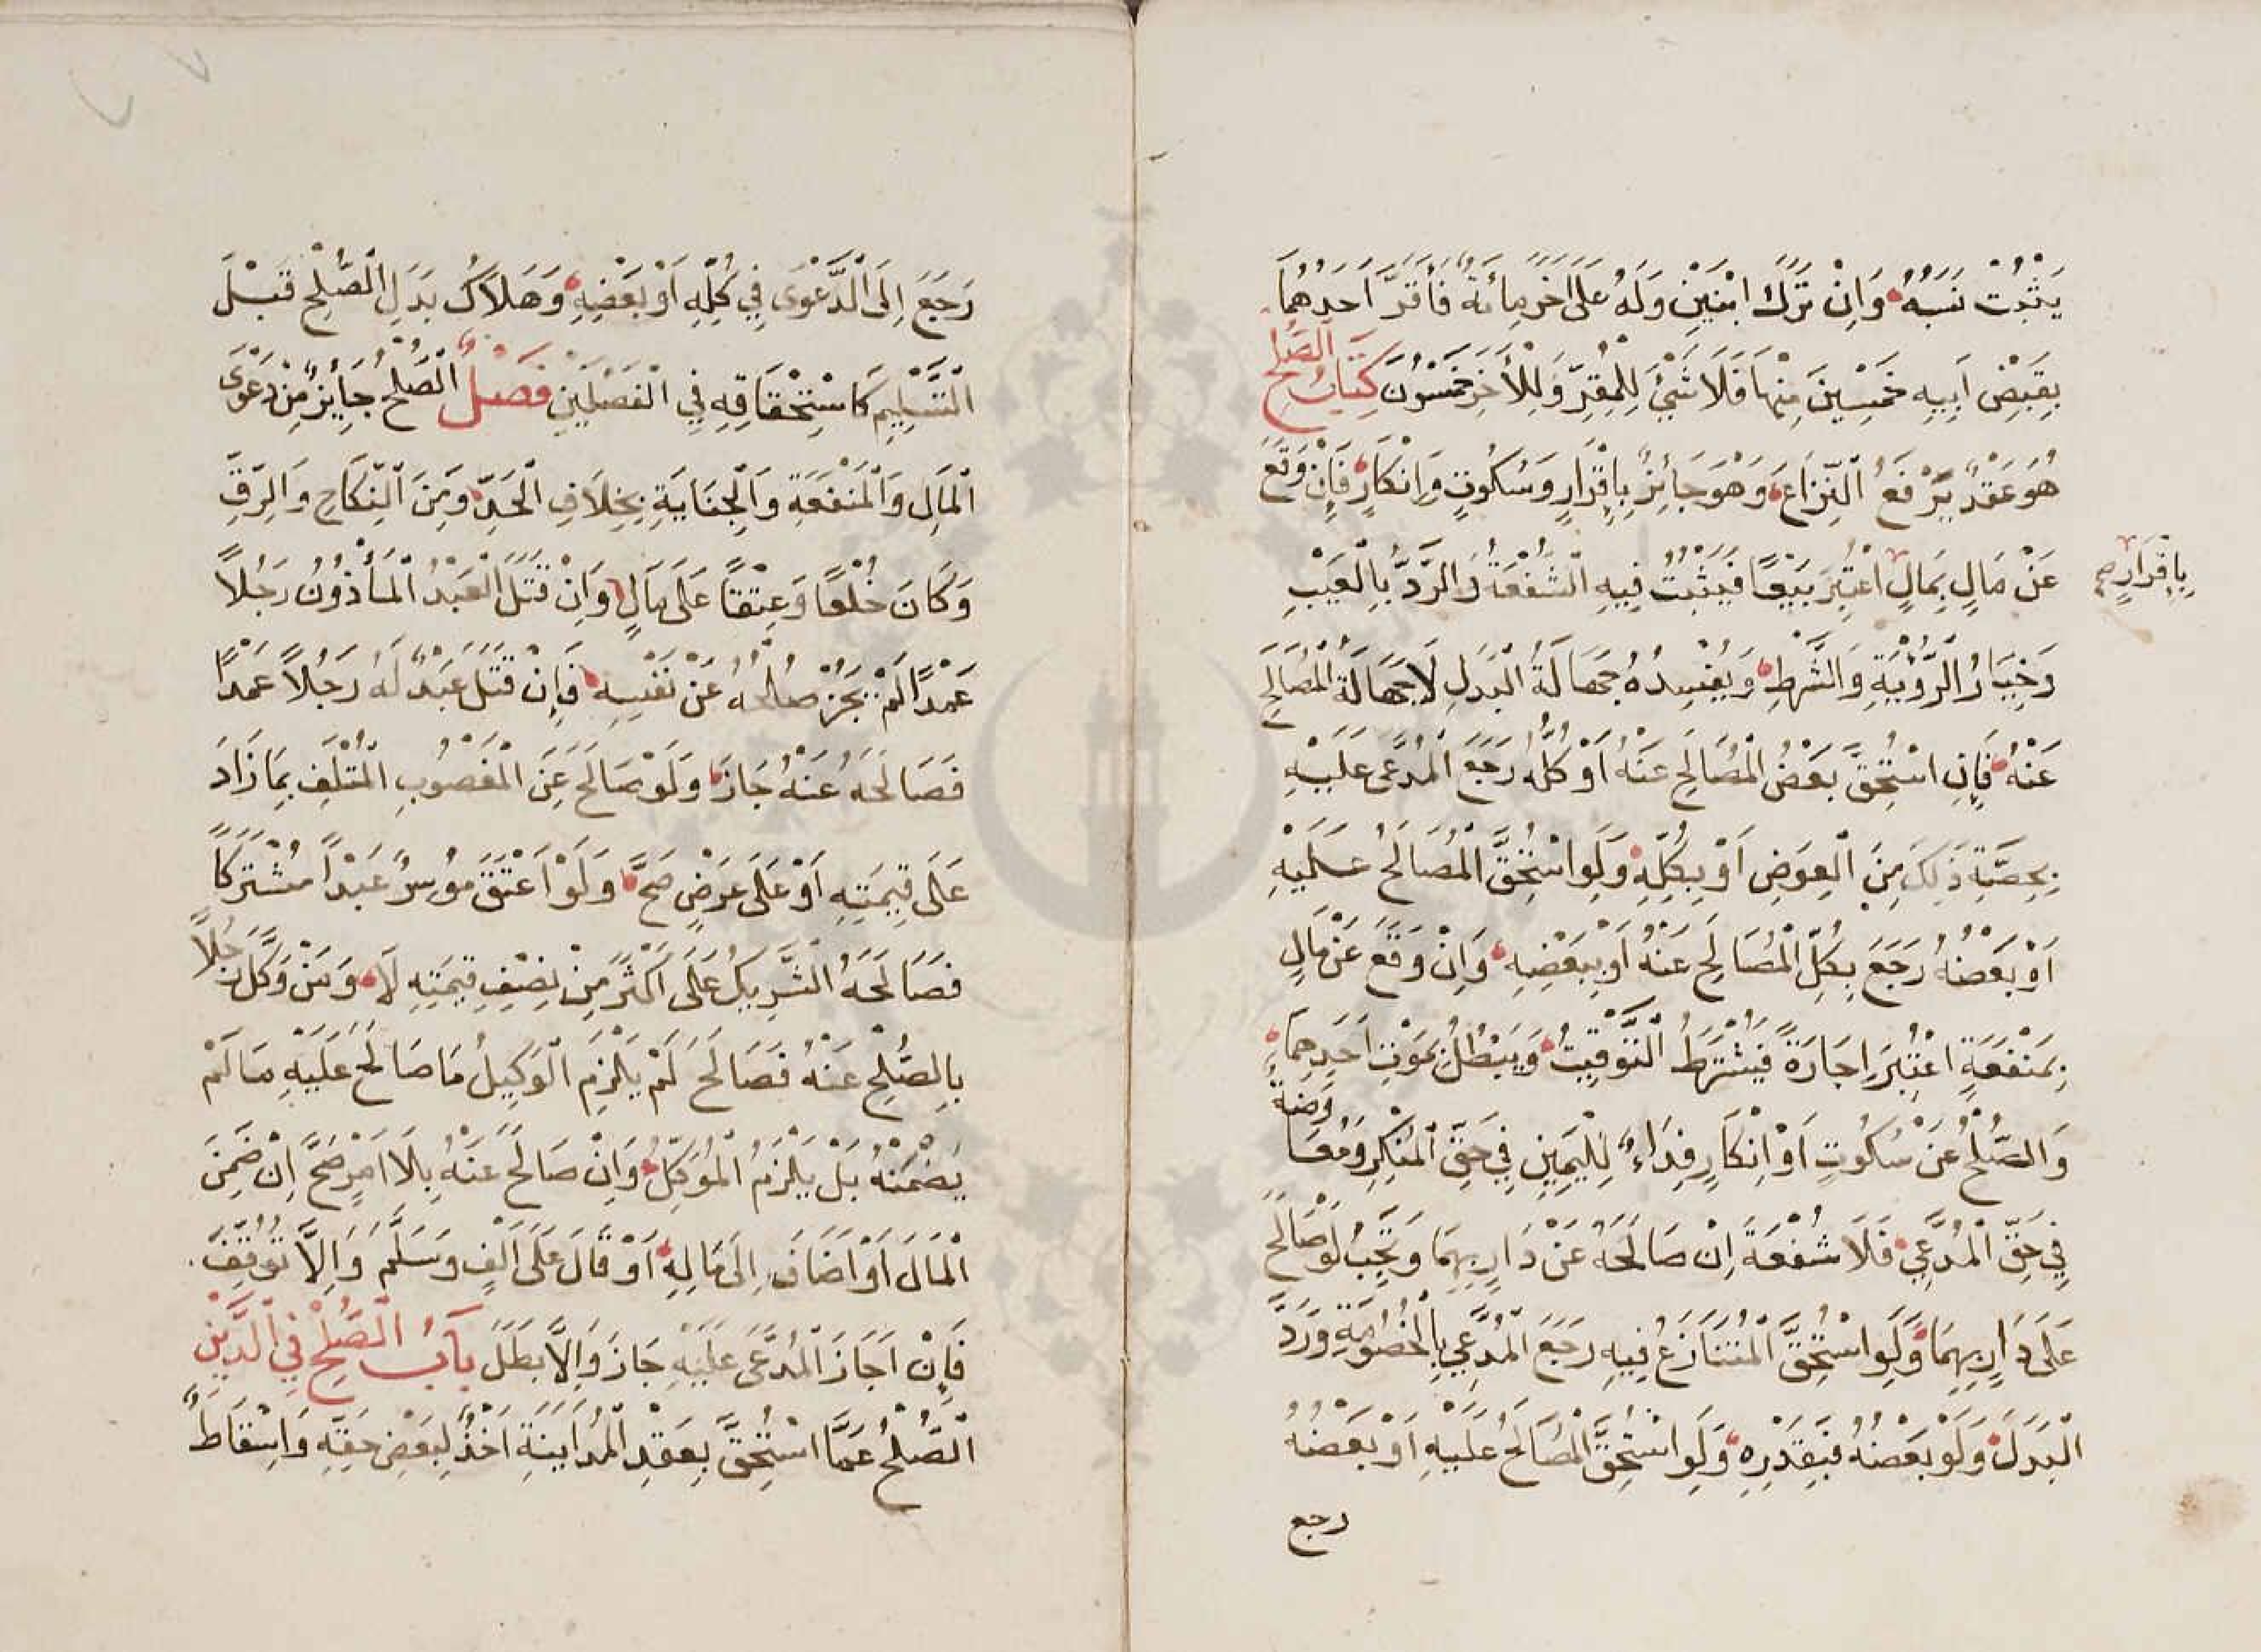 يَثْبُتْ نَسَبُهُ وَاِنْ تَرَكَ ابْنَيْنِ وَلَهُ عَلَى اٰخَرَ مِائَةٌ فَأَقَرَّ اَحَدُهُمَا
بِقَبْضِ اَبِيهِ خَمْسِينَ مِنْهَا فَلَا شَيْءَ لِلْمُقِرِّ وَلِلْاٰخَرِ خَمْسُونَ كِتَابُ الصُّلْحِ
هُوَ عَقْدٌ يَرْفَعُ النِّزَاعَ وَهُوَ جَائِزٌ بِاِقْرَارٍ وَسُكُوتٍ وَاِنْكَارٍ فَاِنْ وَقَعَ
عَنْ مَالٍ بِمَالٍ اعْتُبِرَ بَيْعًا فَيَثْبُتُ فِيهِ الشُّفْعَةُ وَالرَّدُّ بِالْعَيْبِ
بِاِقْرَارٍ صح
وَخِيَارُ الرُّؤْيَةِ وَالشَّرْطِ وَيُفْسِدُهُ جَهَالَةُ الْبَدَلِ لَا جَهَالَةُ الْمُصَالَحِ
عَنْهُ فَاِنِ اسْتُحِقَّ بَعْضُ الْمُصَالَحِ عَنْهُ اَوْ كُلُّهُ رَجَعَ الْمُدَّعَى عَلَيْهِ
بِحِصَّةِ ذٰلِكَ مِنَ الْعِوَضِ اَوْ بِكُلِّهِ وَلَوِ اسْتُحِقَّ الْمُصَالَحُ عَلَيْهِ
اَوْ بَعْضُهُ رَجَعَ بِكُلِّ الْمُصَالَحِ عَنْهُ اَوْ بِبَعْضِهِ وَاِنْ وَقَعَ عَنْ مَالٍ
بِمَنْفَعَةٍ اعْتُبِرَ اِجَارَةً فَيُشْتَرَطُ التَّوْقِيتُ وَيَبْطُلُ بِمَوْتِ اَحَدِهِمَا
وَالصُّلْحُ عَنْ سُكُوتٍ اَوْ اِنْكَارٍ فِدَاءٌ لِلْيَمِينِ فِي حَقِّ الْمُنْكِرِ وَمُعَاوَضَةٌ
فِي حَقِّ الْمُدَّعِي فَلَا شُفْعَةَ اِنْ صَالَحَهُ عَنْ دَارٍ بِهِمَا وَتَجِبُ لَوْ صَالَحَ
عَلَى دَارٍ بِهِمَا وَلَوِ اسْتُحِقَّ الْمُتَنَازَعُ فِيهِ رَجَعَ الْمُدَّعِي بِالْخُصُومَةِ وَرَدَّ
الْبَدَلَ وَلَوْ بَعْضُهُ فَبِقَدْرِهِ وَلَوِ اسْتُحِقَّ الْمُصَالَحُ عَلَيْهِ اَوْ بَعْضُهُ
رجع
رَجَعَ اِلَى الدَّعْوَى فِي كُلِّهِ اَوْ بَعْضِهِ وَهَلَاكُ بَدَلِ الصُّلْحِ قَبْلَ
التَّسْلِيمِ كَاسْتِحْقَاقِهِ فِي الْفَصْلَيْنِ فَصْلٌ الصُّلْحُ جَائِزٌ مِنْ دَعْوَى
الْمَالِ وَالْمَنْفَعَةِ وَالْجِنَايَةِ بِخِلَافِ الْحَدِّ وَمِنَ النِّكَاحِ وَالرِّقِّ
وَكَانَ خُلْعًا وَعِتْقًا عَلَى مَالٍ وَاِنْ قَتَلَ الْعَبْدُ الْمَأْذُونُ رَجُلًا
عَمْدًا لَمْ يَجُزْ صُلْحُهُ عَنْ نَفْسِهِ فَاِنْ قَتَلَ عَبْدٌ لَهُ رَجُلًا عَمْدًا
فَصَالَحَهُ عَنْهُ جَازَ وَلَوْ صَالَحَ عَنِ الْمَغْصُوبِ الْمُتْلَفِ بِمَا زَادَ
عَلَى قِيمَتِهِ اَوْ عَلَى عَرَضٍ صَحَّ وَلَوْ اَعْتَقَ مُوسِرٌ عَبْدًا مُشْتَرَكًا
فَصَالَحَهُ الشَّرِيكُ عَلَى اَكْثَرَ مِنْ نِصْفِ قِيمَتِهِ لَا وَمَنْ وَكَّلَ رَجُلًا
بِالصُّلْحِ عَنْهُ فَصَالَحَ لَمْ يَلْزَمِ الْوَكِيلَ مَا صَالَحَ عَلَيْهِ مَا لَمْ
يَضْمَنْهُ بَلْ يَلْزَمُ الْمُوَكِّلَ وَاِنْ صَالَحَ عَنْهُ بِلَا اَمْرٍ صَحَّ اِنْ ضَمِنَ
الْمَالَ اَوْ اَضَافَ اِلَى مَالِهِ اَوْ قَالَ عَلَى اَلْفٍ وَسَلَّمَ وَاِلَّا تُوُقِّفَ
فَاِنْ اَجَازَ الْمُدَّعَى عَلَيْهِ جَازَ وَاِلَّا بَطَلَ بَابُ الصُّلْحِ فِي الدَّيْنِ
الصُّلْحُ عَمَّا اسْتُحِقَّ بِعَقْدِ الْمُدَايَنَةِ اَخْذٌ لِبَعْضِ حَقِّهِ وَاِسْقَاطٌ